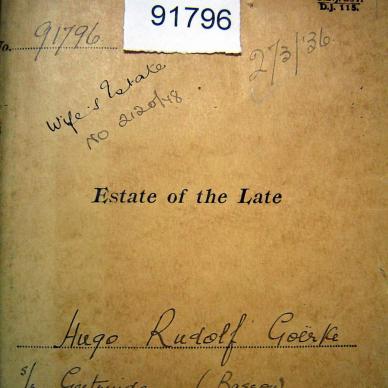 91796
D.J. 115.
No. 91796
27/3/'36
Wife's Estate
No 2120/48
Estate of the Late
Hugo Rudolf Goërke
s/s Gertruida (Basson)